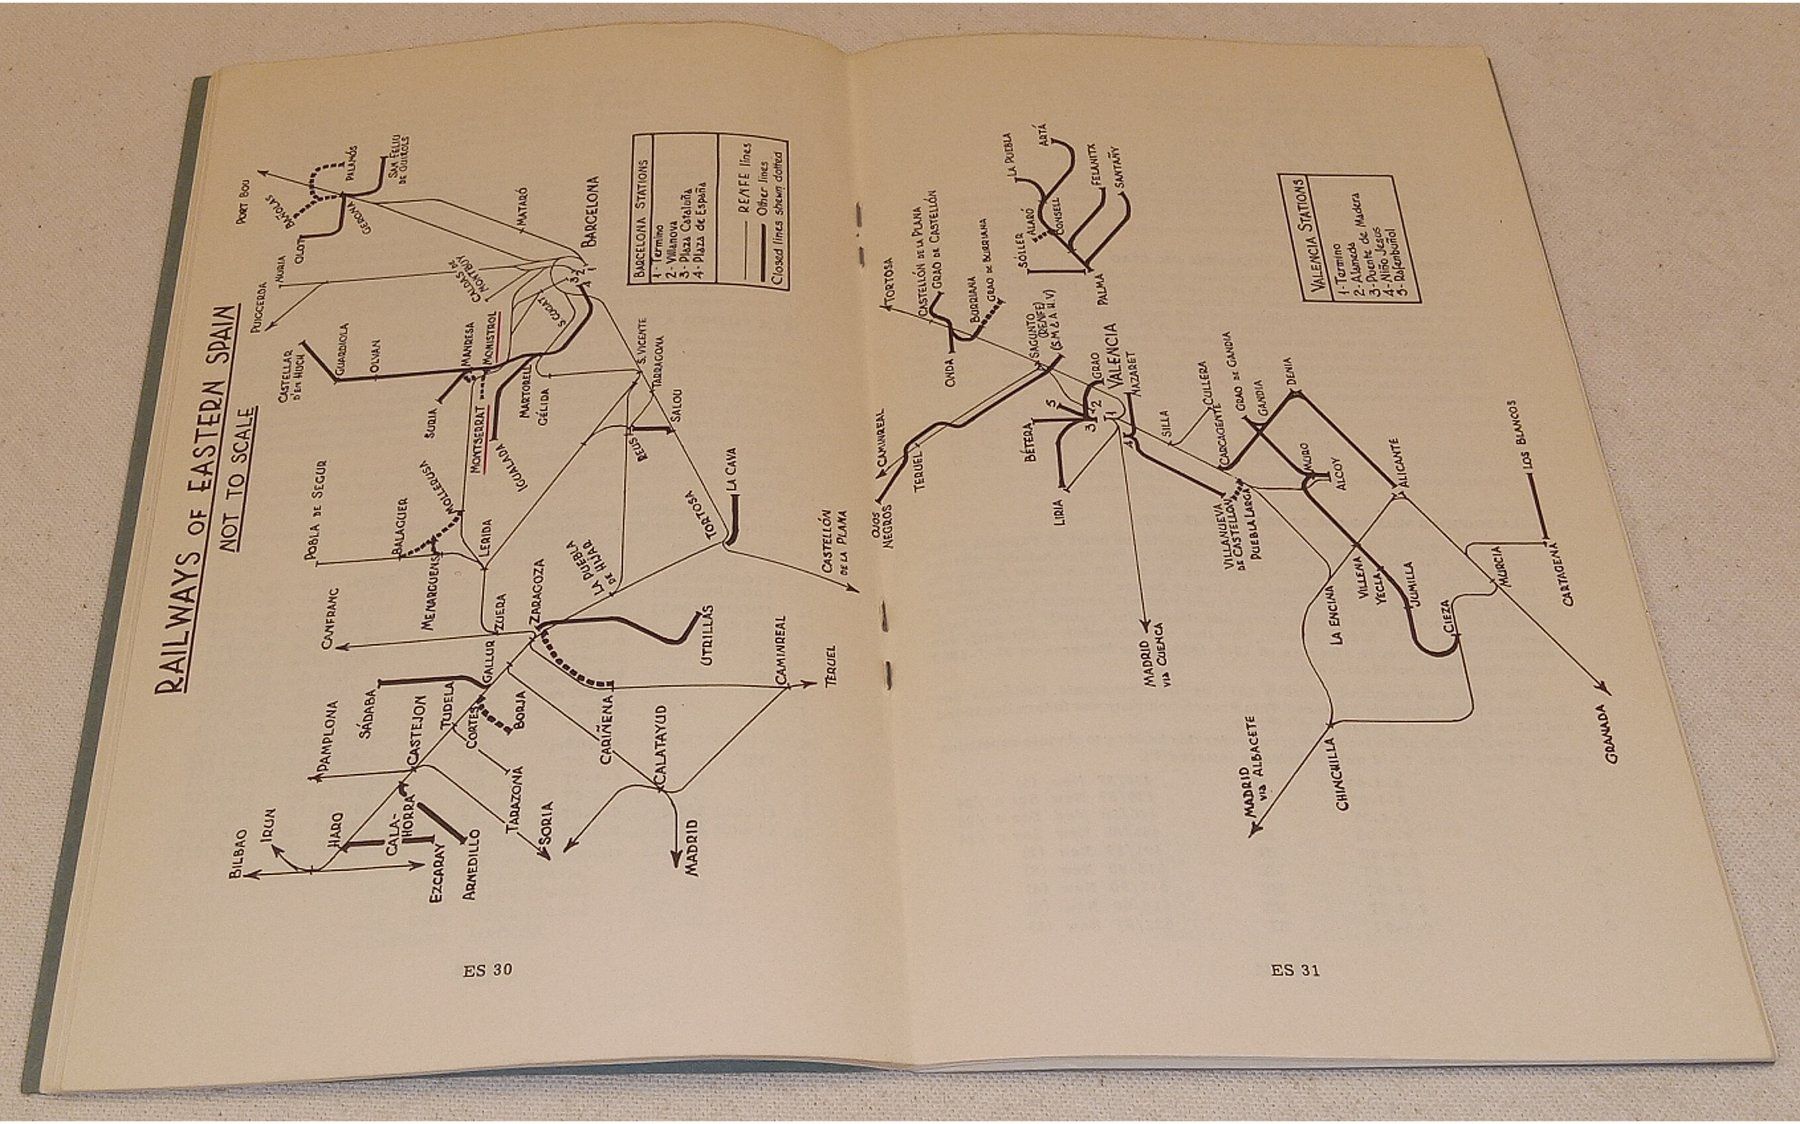 RAILWAYS OF EASTERN SPAIN
NOT TO SCALE
PORT BOU
BAÑOLAS
PALAMÓS
SAN FELIU
DE GUIXOLS
OLOT
GERONA
NURIA
PUIGCERDA
MATARÓ
BARCELONA
CALDAS DE
MONTBUY
S. CUGAT
1
2
3
4
CASTELLAR
D'EN HUCH
GUARDIOLA
OLVAN
MANRESA
MONISTROL
SURIA
MONTSERRAT
MARTORELL
GÉLIDA
IGUALADA
S. VICENTE
TARRAGONA
SALOU
REUS
POBLA DE SEGUR
BALAGUER
MOLLERUSA
MENARGUENS
LERIDA
LA CAVA
TORTOSA
CASTELLÓN
DE LA PLANA
LA PUEBLA
DE HIJAR
CANFRANC
ZUERA
ZARAGOZA
UTRILLAS
GALLUR
SÁDABA
TUDELA
CORTES
BORJA
CARIÑENA
CAMINREAL
TERUEL
PAMPLONA
CASTEJON
TARAZONA
CALATAYUD
SORIA
MADRID
BILBAO
IRUN
HARO
CALA-
HORRA
EZCARAY
ARNEDILLO
BARCELONA STATIONS
1 - Termino
2 - Villanova
3 - Plaza Cataluña
4 - Plaza de España
RENFE lines
Other lines
Closed lines shewn dotted
ES 30
LA PUEBLA
ARTÁ
ALARÓ
CONSELL
FELANITX
SANTAÑY
SÓLLER
PALMA
TORTOSA
CASTELLÓN DE LA PLANA
GRAO DE CASTELLÓN
BURRIANA
GRAO DE BURRIANA
ONDA
SAGUNTO
(RENFE)
(S.M & A.H.V)
CAMINREAL
TERUEL
OJOS
NEGROS
GRAO
VALENCIA
NAZARET
BÉTERA
LIRIA
5
2
3
1
4
SILLA
CULLERA
CARCAGENTE
GRAO DE GANDIA
GANDIA
DENIA
VILLANUEVA
DE CASTELLON
PUEBLA LARGA
MURO
ALCOY
ALICANTE
LOS BLANCOS
MADRID
via CUENCA
LA ENCINA
VILLENA
YECLA
JUMILLA
CIEZA
MURCIA
CARTAGENA
MADRID
via ALBACETE
CHINCHILLA
GRANADA
VALENCIA STATIONS
1 - Termino
2 - Alameda
3 - Puente de Madera
4 - Niño Jesus
5 - Rafenbuñol
ES 31